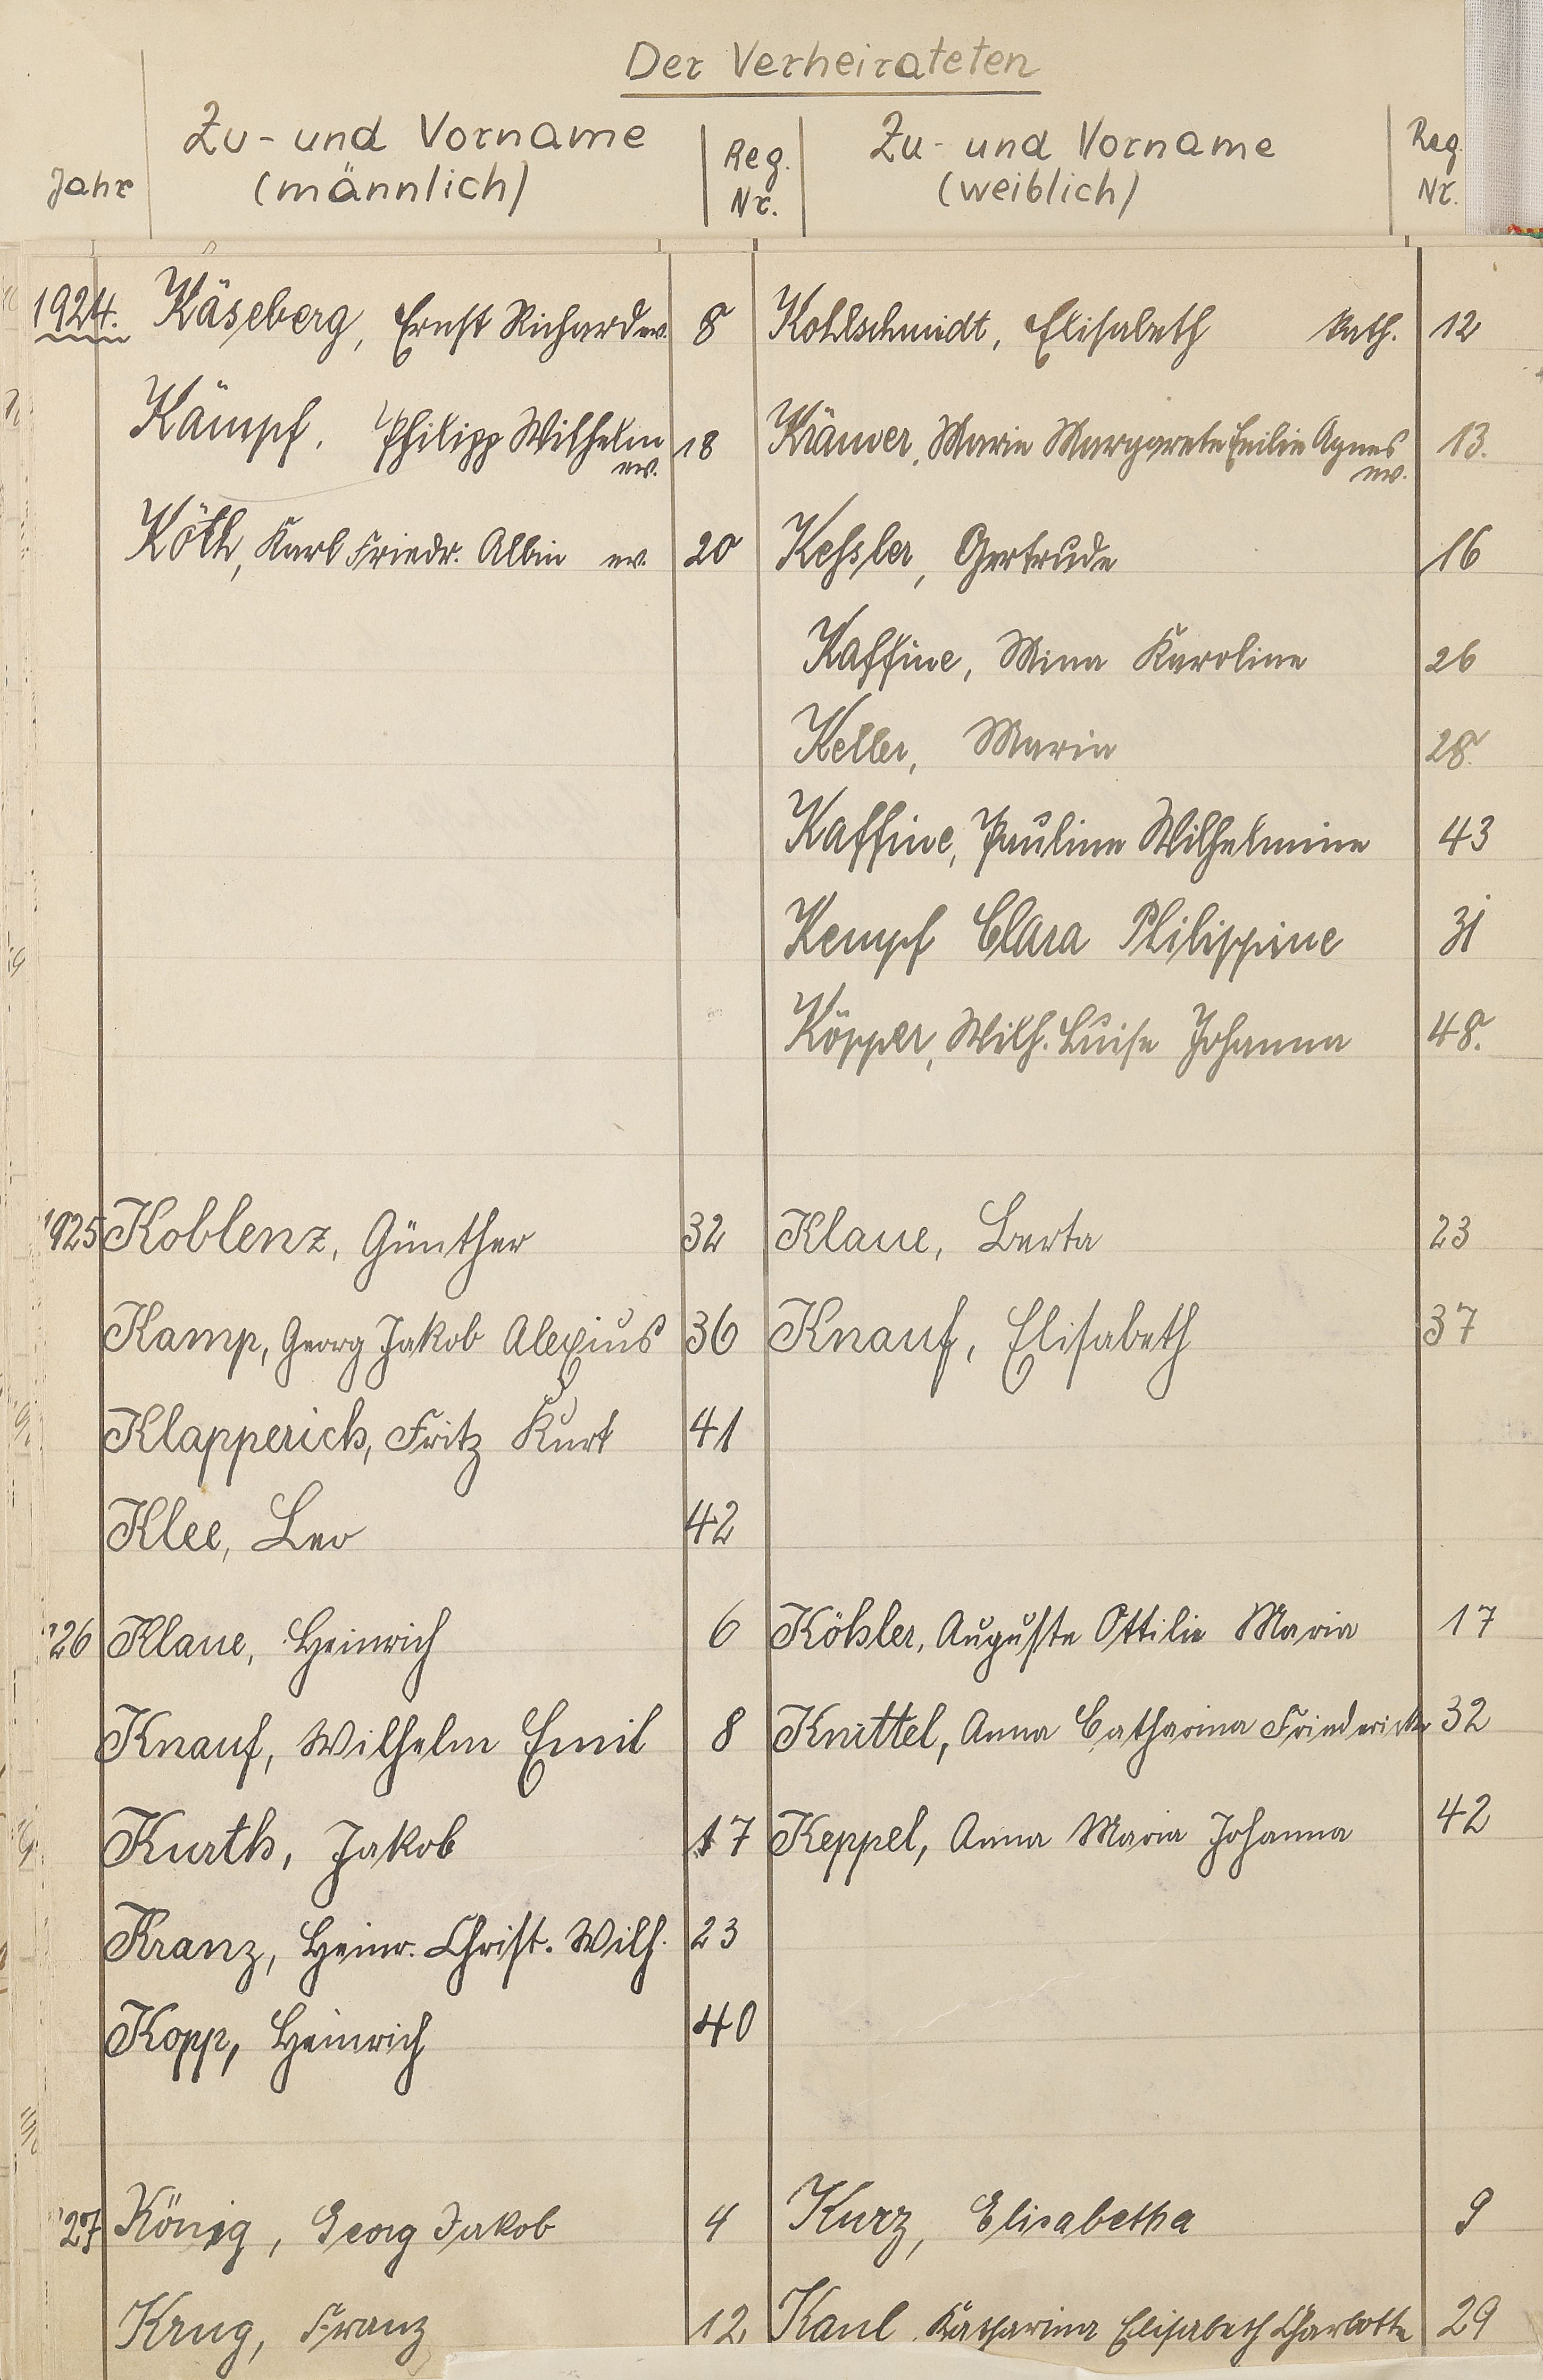 Der Verheirateten
Jahr Zu- und Vorname (männlich) Reg. Nr. Zu- und Vorname (weiblich) Reg. Nr.
1924. Käseberg, Ernst Richard ev. 8 Kohlschmidt, Elisabeth kath. 12
Kämpf, Philipp Wilhelm ev. 18 Krämer, Marie Margarete Emilie Agnes ev. 13.
Köth, Karl Friedr. Albin ev. 20 Keßler, Gertrude 16
Kaffine, Mina Karoline 26
Keller, Maria 28.
Kaffine, Pauline Wilhelmine 43
Kempf Clara Philippine 31
Köpper, Wilh. Luise Johanna 48.
1925 Koblenz, Günther 32 Klaue, Berta 23
Kamp, Georg Jakob Alexius 36 Knauf, Elisabeth 37
Klapperich, Fritz Kurt 41
Klee, Leo 42
'26 Klaue, Heinrich 6 Köhler, Auguste Ottilie Maria 17
Knauf, Wilhelm Emil 8 Knittel, Anna Catharina Friedericke 32
Kurth, Jakob 17 Keppel, Anna Maria Johanna 42
Kranz, Heinr. Christ. Wilh. 23
Kopp, Heinrich 40
'27 König, Georg Jakob 4 Kurz, Elisabetha 9
Krug, Franz 12 Kaul, Katharina Elisabeth Charlotte 29